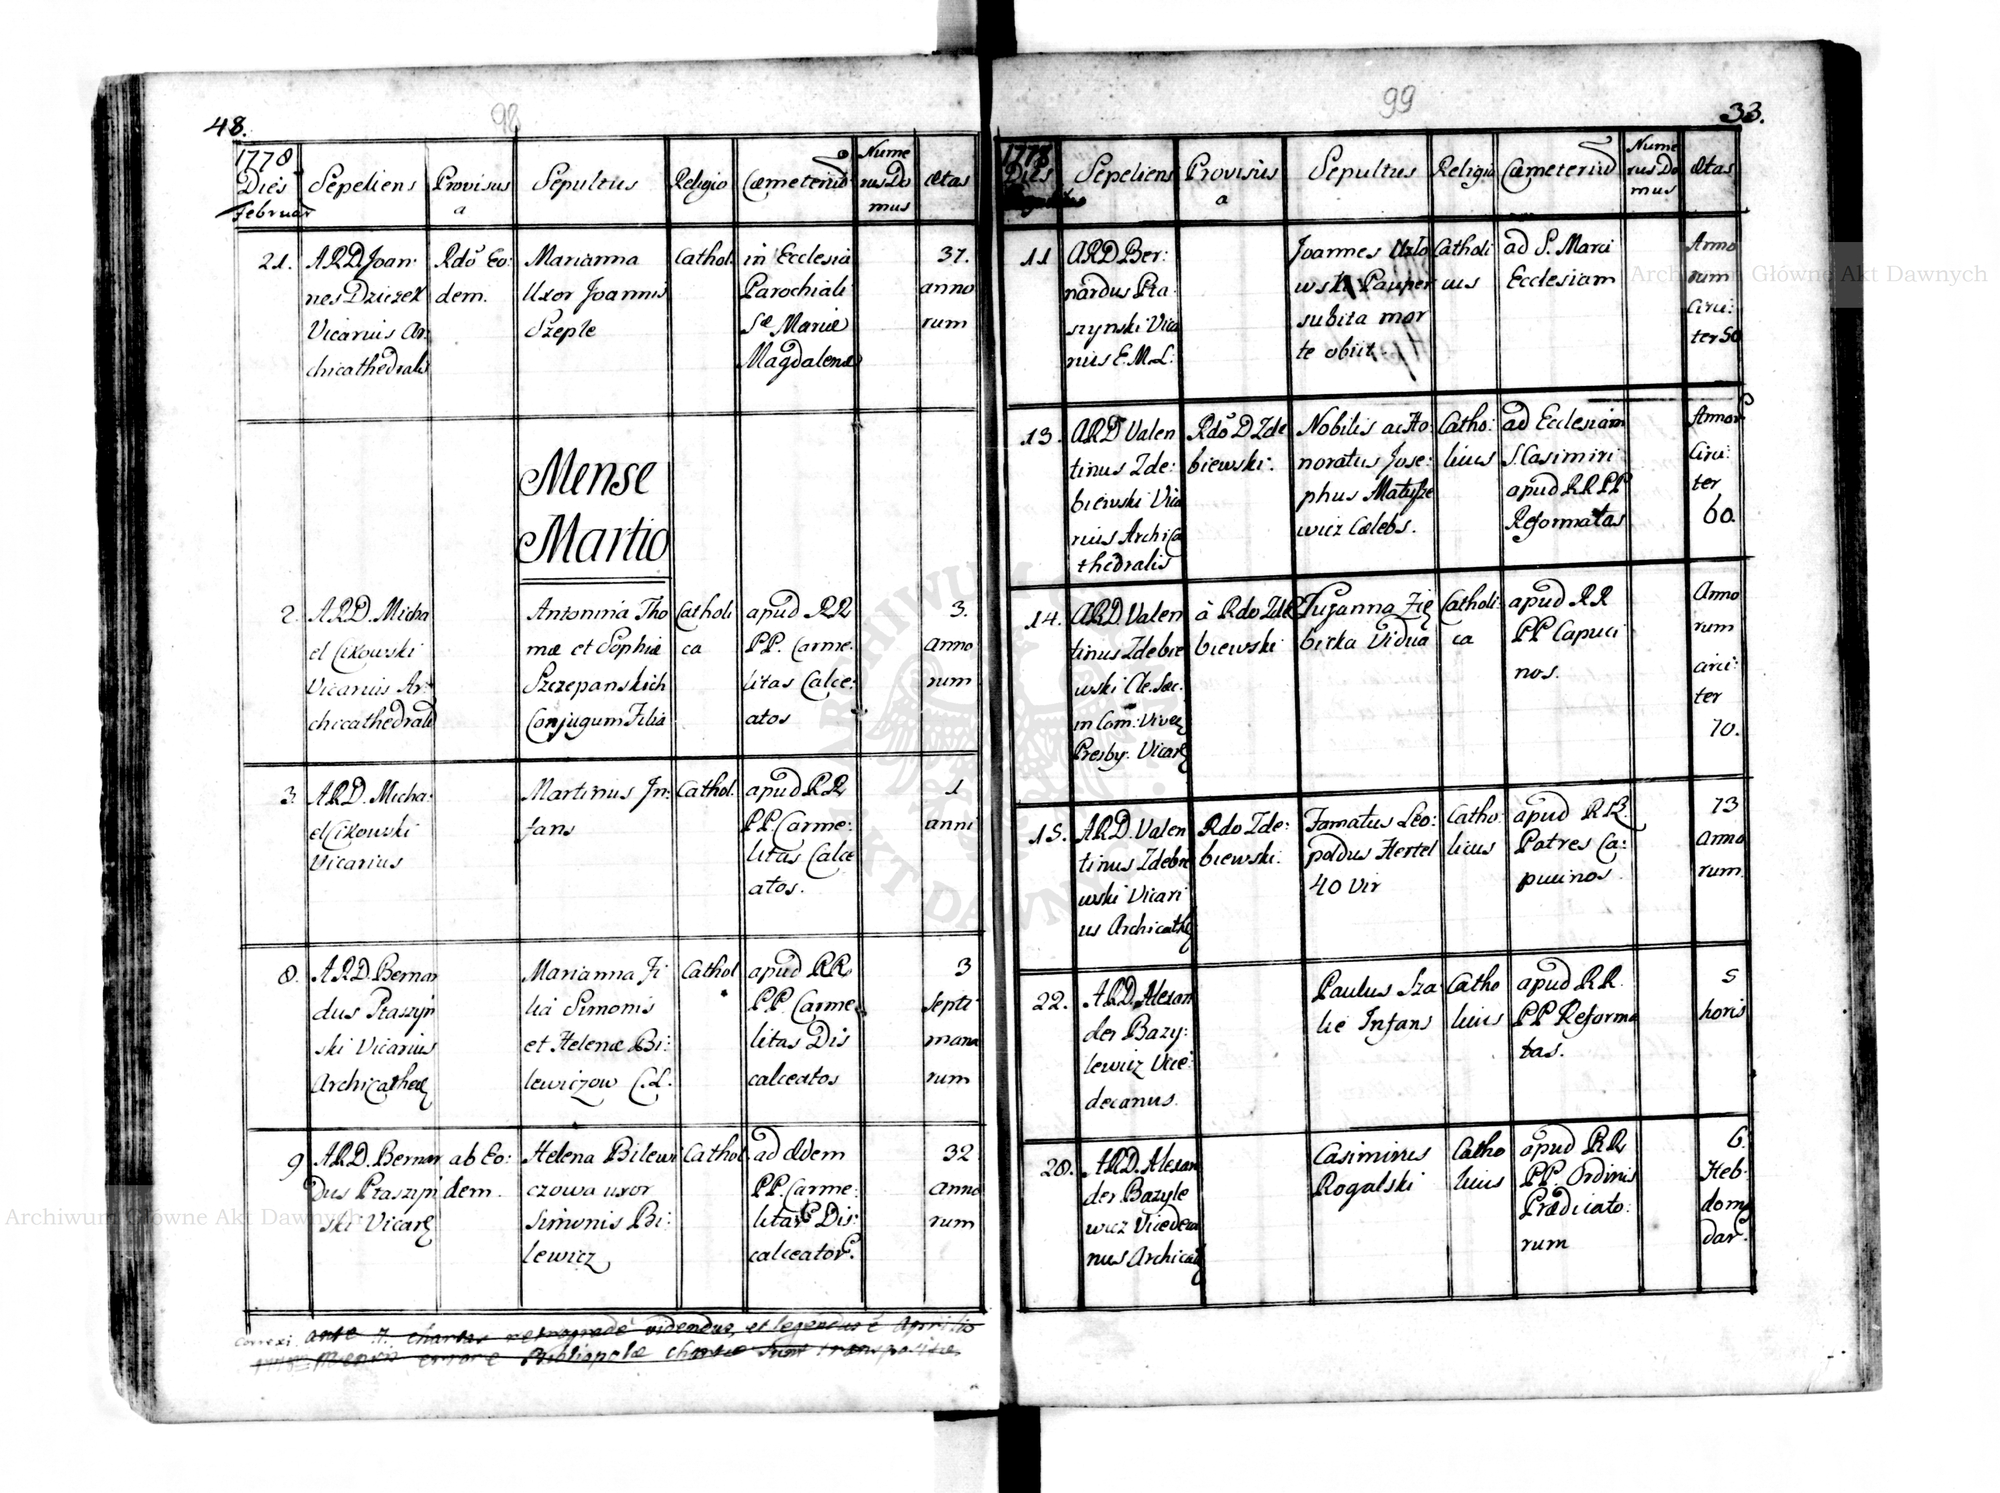 48.
98
1778
Dies
Februar
Sepeliens
Provisus
a
Sepultus
Religio
Cæmeteriū
Nume
rus Do
mus
ætas
21.
ARD. Joan:
nes Dziezek
Vicarius Ar
chicathedralis
Rdō Eo:
dem.
Marianna
Uxor Joannis
Szeple
Cathol.
in Ecclesia
Parochiali
Sæ Mariæ
Magdalenæ
37.
anno
rum
Mense
Martio
2.
ARD. Micha
el Cikowski
Vicarius Ar:
chicathedralis
Antonina Tho
mæ et Sophiæ
Szczepanskich
Conjugum Filia
Catholi
ca
apud RR
PP. Carme:
litas Calce:
atos
3.
anno
rum
3.
ARD. Micha:
el Cikowski
Vicarius
Martinus In:
fans
Cathol.
apud RR
PP. Carme:
litas Calce
atos.
1
anni
8.
ARD. Bernar
dus Ptaszyń
ski Vicarius
Archicathed
Marianna Fi
lia Simonis
et Helenæ Bi:
lewiczow C.L.
Cathol
apud RR
PP. Carme
litas Dis
calceatos
3
septi
mana
rum
9
ARD. Bernar
dus Ptaszyń
ski Vicar
ab Eo:
dem.
Helena Bilewi
czowa uxor
Simonis Bi:
lewicz
Cathol.
ad eosdem
PP. Carme:
litas Dis:
calceator.
32
anno
rum
Correxi. ante 7. chartas retrogradè videndus, et legendus è Aprilis
Mensis errore Bibliopolæ chartæ sunt transpositæ.
99
33.
1778
Dies
Sepeliens
Provisus
a
Sepultus
Religio
Cæmeteriū
Nume
rus Do
mus
ætas
11
ARD Ber:
nardus Pta
szynski Vica
rius E.M.L.
Joannes Uzło
wski Pauper
subita mor
te obiit
Catholi
cus
ad S. Marci
Ecclesiam
Anno
rum
circi:
ter 50
13.
ARD Valen
tinus Zde:
biewski Vica
rius Archica
thedralis
Rdō D Zde
biewski.
Nobilis ac Ho:
noratus Jose:
phus Matysze
wicz Cælebs.
Catho:
licus
ad Ecclesiam
S. Casimiri
apud RR PP
Reformatas
Annor
Circi:
ter
60.
14.
ARD Valen
tinus Zdebie
wski Cle. Sæc.
in Com: Viven
Presby. Vicar
à Rdo Zde
biewski
Zuzanna Zię
bicka Vidua
Catholi:
ca
apud RR
PP Capuci
nos.
Anno
rum
circi:
ter
70.
15.
ARD. Valen
tinus Zdebie
wski Vicari
us Archicath
Rdo Zde:
biewski.
Famatus Leo:
poldus Hertel
40 Vir
Catho:
licus
apud RR.
Patres Ca:
pucinos.
73
anno
rum.
22.
ARD. Alexan
der Bazy:
lewicz Vice:
decanus.
Paulus Sza
lie Infans
Catho
licus
apud RR.
PP Reforma
tas.
5
horis
28.
ARD. Alexan
der Bazyle
wicz Vicedeca
nus Archicath
Casimirus
Rogalski
Catho
licus
apud RR
PP. Ordinis
Prædicato:
rum
6
Heb-
doma
dar.
Archiwum Główne Akt Dawnych
Archiwum Główne Akt Dawnych
ARCHIWUM GŁÓWNE AKT DAWNYCH